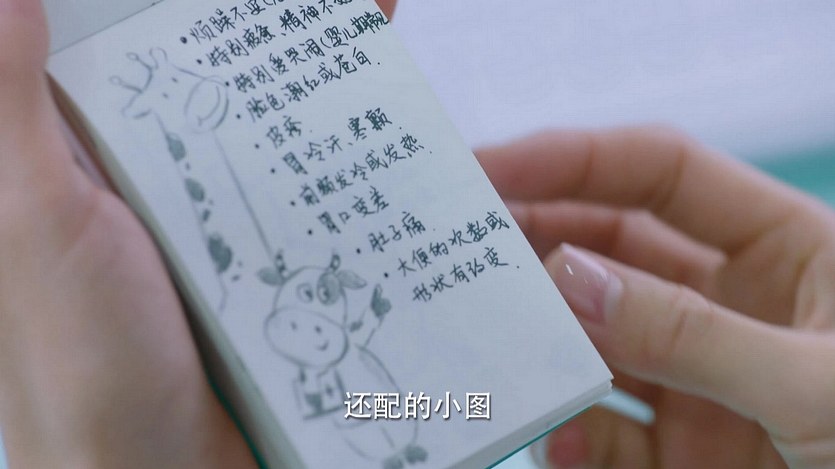 • 烦躁不安
• 特别疲惫、精神不
• 特别爱哭闹(婴儿期
• 脸色潮红或苍白.
• 皮疹.
• 冒冷汗、寒颤.
• 前额发冷或发热.
• 胃口变差
• 肚子痛.
• 大便的次数或
形状有改变.
还配的小图